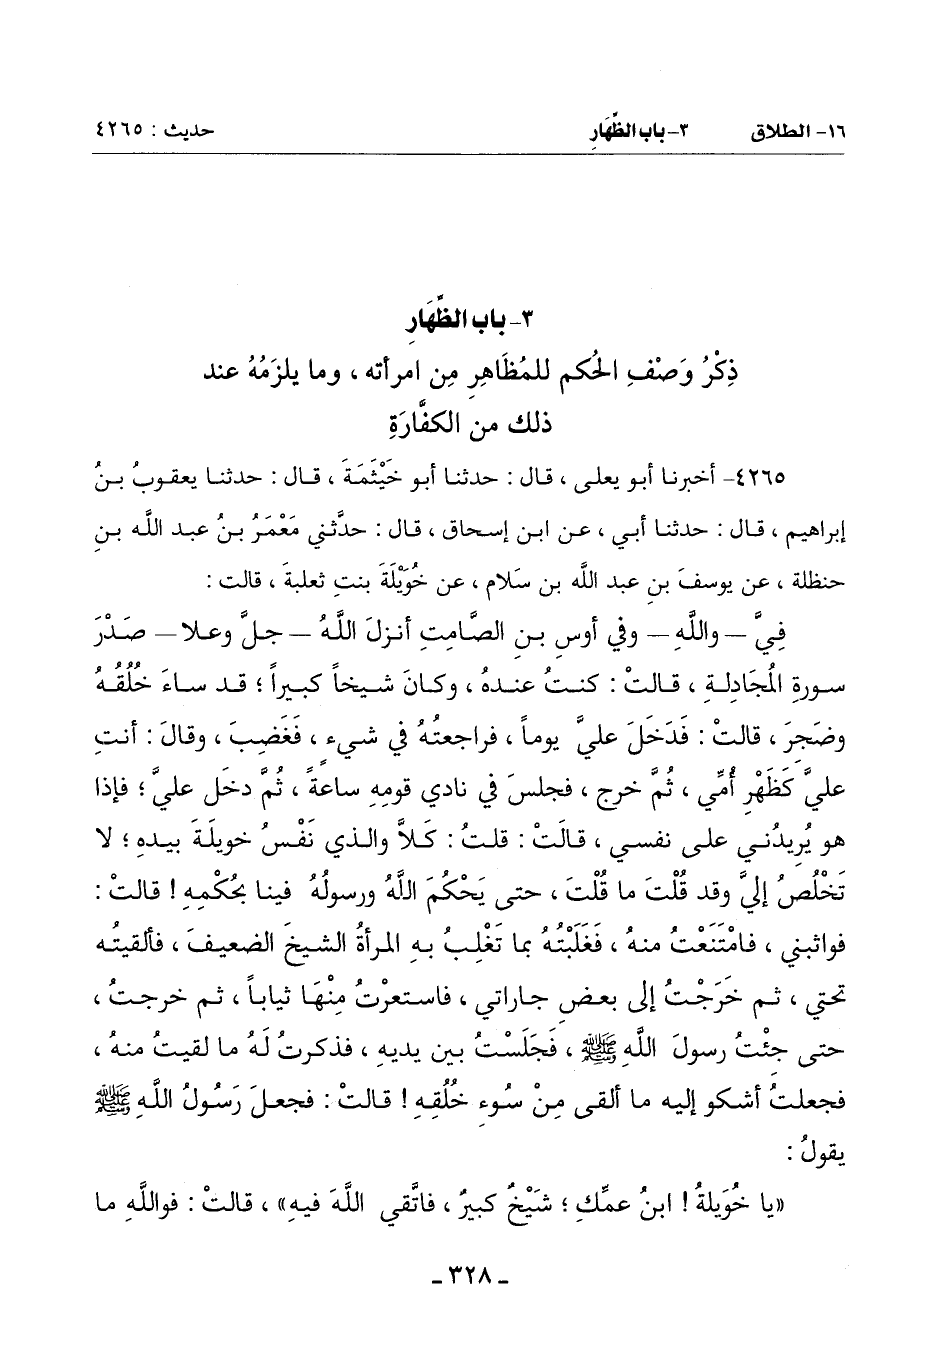 ١٦- الطلاق ٣- باب الظِّهَارِ حديث : ٤٢٦٥
٣- باب الظِّهَارِ
ذِكْرُ وَصْفِ الحُكم للمُظَاهِرِ مِن امرأته ، وما يلزَمُهُ عند
ذلك من الكفَّارَةِ
٤٢٦٥- أخبرنا أبو يعلى ، قال : حدثنا أبو خَيْثَمَةَ ، قال : حدثنا يعقوبُ بنُ
إبراهيم ، قال : حدثنا أبي ، عن ابن إسحاق ، قال : حدَّثني مَعْمَرُ بنُ عبد اللَّه بنِ
حنظلة ، عن يوسفَ بنِ عبد اللَّه بن سَلام ، عن خُوَيْلَةَ بنتِ ثعلبةَ ، قالت :
فِيَّ – واللَّهِ – وفي أوسِ بنِ الصَّامتِ أنزلَ اللَّهُ – جلَّ وعلا – صَدْرَ
سورةِ المُجَادِلةِ ، قالتْ : كنتُ عندهُ ، وكانَ شيخاً كبيراً ؛ قد ساءَ خُلُقُهُ
وضَجِرَ ، قالتْ : فَدَخَلَ عليَّ يوماً ، فراجعتُهُ في شيءٍ ، فَغَضِبَ ، وقالَ : أنتِ
عليَّ كَظَهْرِ أُمِّي ، ثُمَّ خرج ، فجلسَ في نادي قومِهِ ساعةً ، ثُمَّ دخَل عليَّ ؛ فإذا
هو يُرِيدُني على نفسي ، قالَتْ : قلتُ : كَلاَّ والذي نَفْسُ خويلَةَ بيدِهِ ؛ لا
تَخْلُصُ إليَّ وقد قُلْتَ ما قُلْتَ ، حتى يَحْكُمَ اللَّهُ ورسولُهُ فينا بحُكْمِهِ ! قالتْ :
فواثبني ، فامْتَنَعْتُ منهُ ، فَغَلَبْتُهُ بما تَغْلِبُ بهِ المرأةُ الشيخَ الضعيفَ ، فألقيتُه
تحتي ، ثم خَرَجْتُ إلى بعضِ جاراتي ، فاستعرْتُ مِنْهَا ثياباً ، ثم خرجتُ ،
حتى جئْتُ رسولَ اللَّهِ ﷺ ، فَجَلَسْتُ بين يديهِ ، فذكرتُ لَهُ ما لقيتُ منهُ ،
فجعلتُ أشكو إليه ما ألقى مِنْ سُوءِ خُلُقِهِ ! قالتْ : فجعلَ رَسُولُ اللَّهِ ﷺ
يقولُ :
«يا خُوَيلةُ ! ابنُ عمِّكِ ؛ شَيْخٌ كبيرٌ ، فاتَّقي اللَّهَ فيهِ» ، قالتْ : فواللَّهِ ما
- ٣٢٨ -